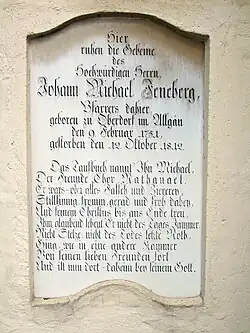 Hier
ruhen die Gebeine
des
Hochwürdigen Herrn,
Johann Michael Feneberg,
Pfarrers dahier,
geboren zu Oberdorf im Allgäu
den 9 Februar 1751.
gestorben den 12 Oktober 1812.
Das Taufbuch nannt' Ihn Michael,
Der Freunde Chor Nathanael.
Er war's ohn' alles Falsch und Ziererey,
Stillsinnig, fromm, gerad und froh dabey,
Und seinem Christus bis ans Ende treu.
Ihm glaubend scheut Er nicht des Tages Jammer,
Nicht Stelze, nicht des Todes letzte Noth.
Ging, wie in eine andere Kammer
Von seinen lieben Freunden fort
Und ist nun dort - daheim bey seinem Gott.